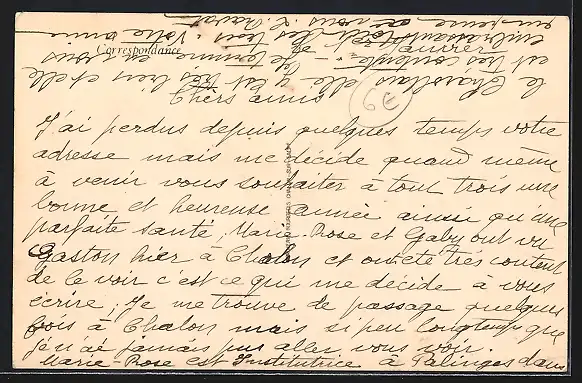 Correspondance
Chers amis
J'ai perdus depuis quelques temps votre
adresse mais me décide quand même
à venir vous souhaiter à tout trois une
bonne et heureuse année ainsi qu'une
parfaite santé. Marie-Rose et Gaby ont vu
Gaston hier à Chalon et ont été très content
de le voir c'est ce qui me décide à vous
écrire. Je me trouve de passage quelques
fois à Chalon mais si peu longtemps que
je n'ai jamais pus aller vous voir
Marie-Rose est Institutrice à Palinges dans
le Charollais elle y est très bien et elle
est très contente. Je termine en vous
embrassant les tous. Votre amie
en pensée à vous